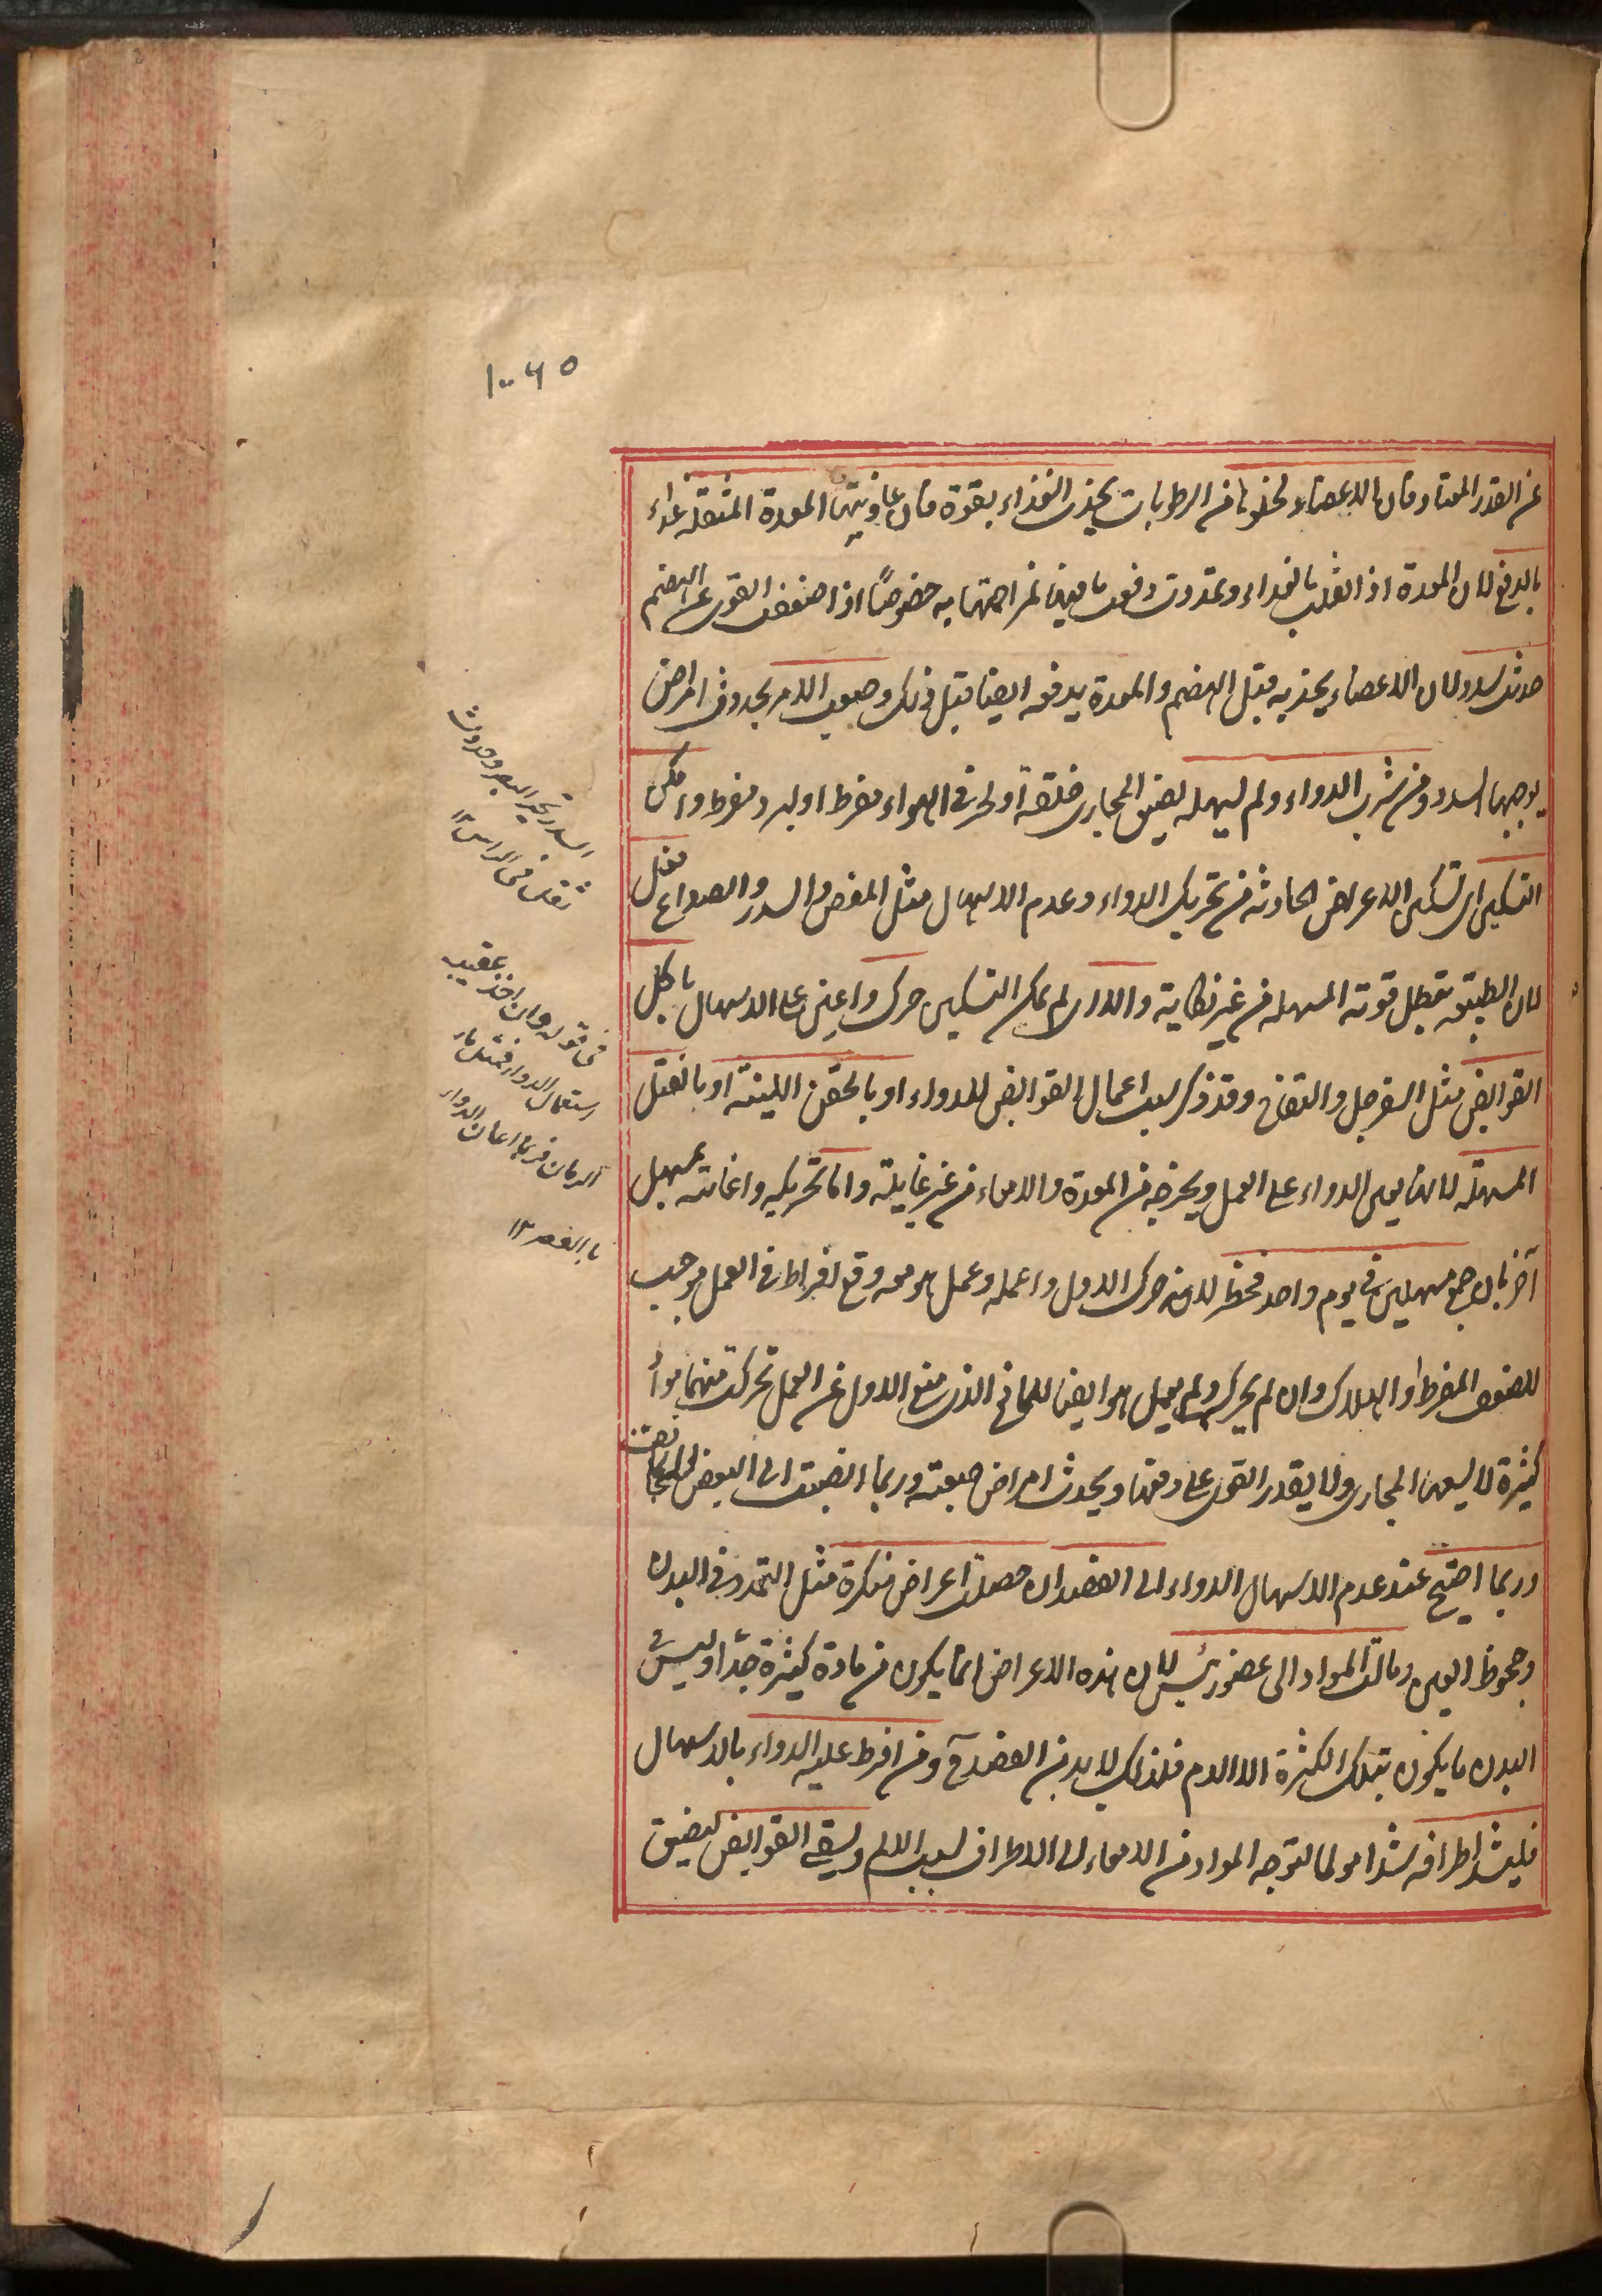 ١٠٠٦٥
عن القدر المعتاد فان الاعضاء لخلوها من الرطوبات يجذب الغذاء بقوة فان عاونتها المعدة المثقلة غذاء
بالدفع لان المعدة اذا اثقلت بالغذاء وتمددت دفعت ما فيها لمزاحمتها به خصوصًا اذا ضعفت القوى عن الهضم
حدثت سدد لان الاعضاء يجذبه قبل الهضم والمعدة يدفعه ايضا قبل ذلك وصعب الامر بحدوث امراض
يوجبها السدد ومن شرب الدواء ولم يسهله لضيق المجارى خلقة او لحر فى الهواء مفرط او لبرد مفرط وامكن
التسكين اى تسكين الاعراض الحادثة من تحريك الدواء وعدم الاسهال مثل المغص والسدر والصداع فعل
لان الطبيعة تبطل قوته المسهلة من غير نكاية والا اى لم يمكن التسكين حرك واعين على الاسهال باكل
القوابض مثل السفرجل والتفاح وقد ذكر سبب اعمال القوابض للدواء او بالحقن اللينة او بالفتل
المسهلة لانها يعين الدواء على العمل ويخرجه من المعدة والامعاء من غير غايلة واما تحريكه واعانته بمسهل
آخر بان جمع مسهلين فى يوم واحد فخطر لانه ان حرك الاول واعمله وعمل هو معه وقع افراط فى العمل موجب
للضعف المفرط او الهلاك وان لم يحركه ولم يعمل هو ايضا للمانع الذى منع الاول عن العمل تحركت منهما مواد
كثيرة لا يسعها المجارى ولا يقدر القوى على دفعها ويحدث امراض صعبة وربما انصبت الى البعض
وربما احتيج عند عدم الاسهال الدواء الى الفصد ان حصلت اعراض منكرة مثل التمدد فى البدن
وجحوظ العين ومالت المواد الى عضو رئيس لان هذه الاعراض انما يكون من مادة كثيرة جدّا وليس فى
البدن ما يكون بتلك الكثرة الا الدم فلذلك لابد من الفصد ح ومن افرط عليه الدواء بالاسهال
فليشد اطرافه شدا مولما لتوجه المواد من الامعاء الى الاطراف بسبب الالم ويسقى القوابض ليضيق
السدر تحير البصر وحدوث
ثقل فى الراس ١٢
فى قوله وان اخذ عقيب
استعمال الدواء
الرمان فربما اعان الدواء
بالعصر ١٢